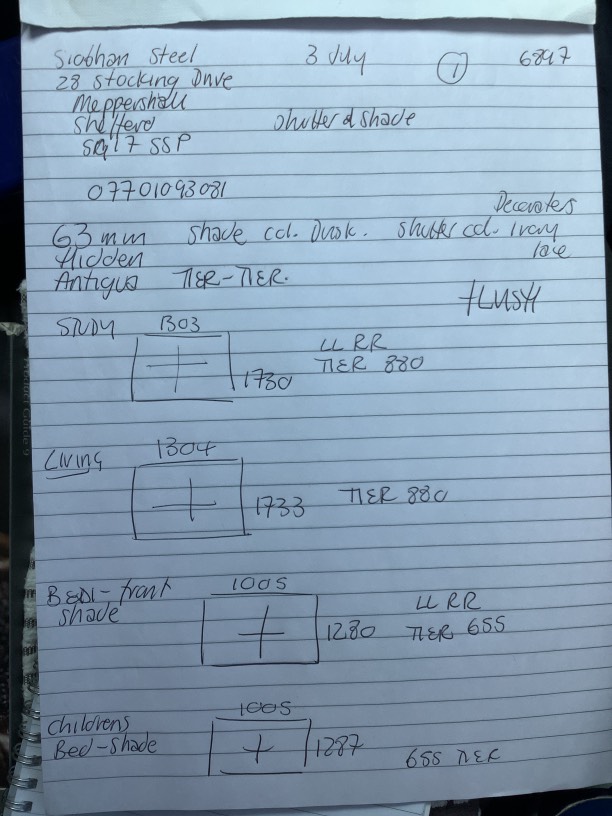 Siobhan Steel 3 July ① 6897
28 Stocking Drive
Meppershall
Shefford shutter & shade
SG17 5SP
07701093081
Decorates
63mm shade col. Dusk. Shutter col. Ivory
Hidden lace
Antigua TIER-TIER.
FLUSH
STUDY 1303
LL RR
1730 TIER 880
Living 1304
1733 TIER 880
BED1-front 1005
shade LL RR
1280 TIER 655
Childrens 1005
Bed-Shade 1287 655 TIER